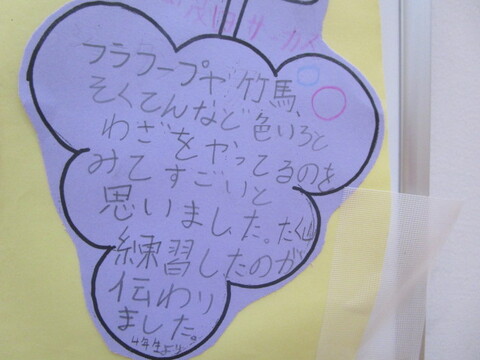 サーカス
フラフープや竹馬、
そくてんなど色いろと
わざをやってるのを
みてすごいと
思いました。たく山
練習したのが
伝わり
ました。
4年生より